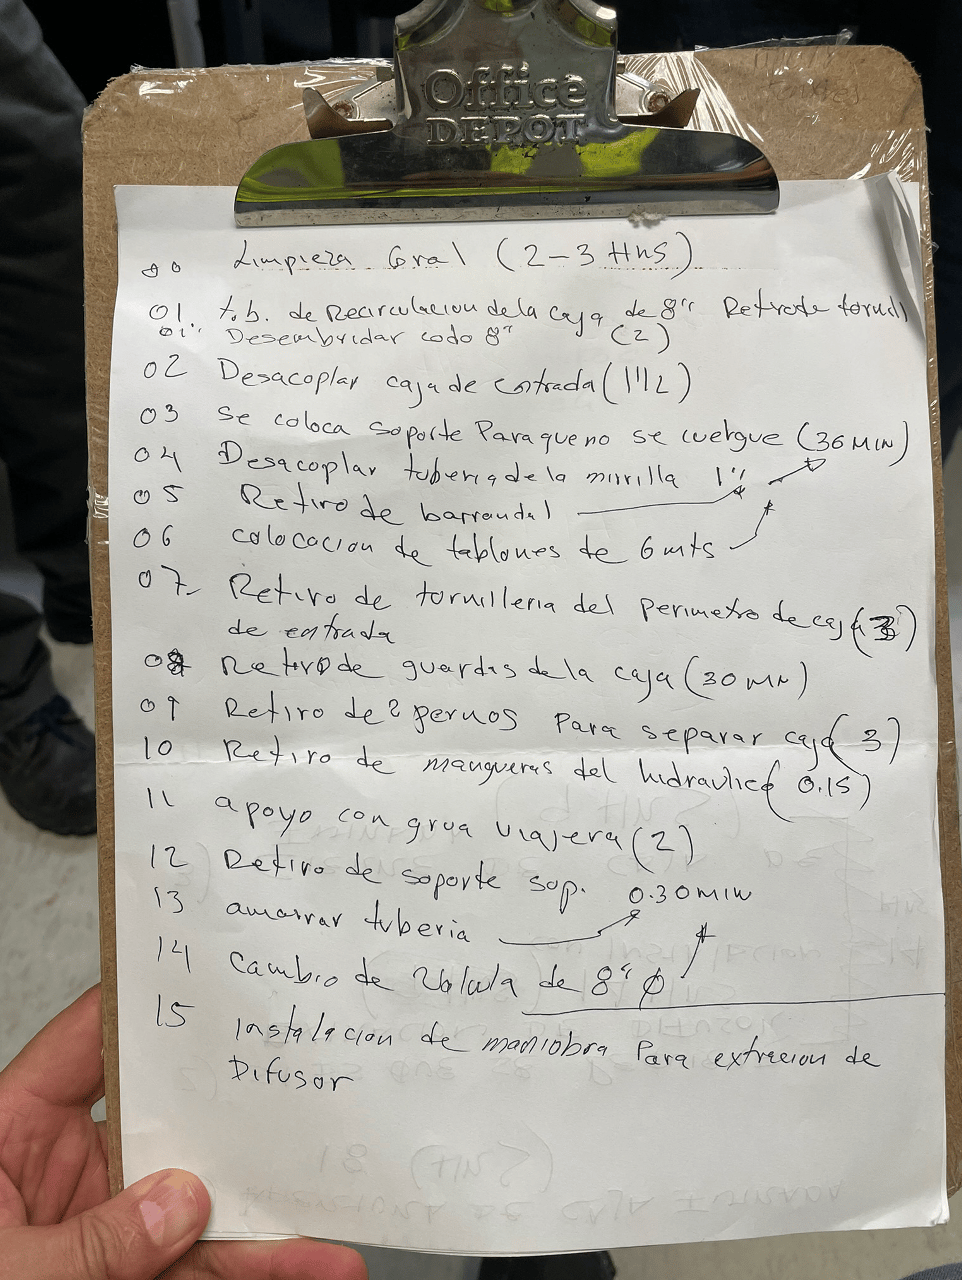 Office
DEPOT
00 Limpieza Gral (2-3 Hrs)
01 t.b. de Recirculacion de la caja de 8" Retiro de tornill
01" Desembridar codo 8" (2)
02 Desacoplar caja de entrada (1"1/2)
03 se coloca soporte Para que no se cuelgue (30 MIN)
04 Desacoplar tuberia de la mirilla 1"
05 Retiro de barrandal
06 colocacion de tablones de 6 mts
07 Retiro de tornilleria del perimetro de caja (3)
de entrada
08 Retiro de guardas de la caja (30 MN)
09 Retiro de 2 pernos Para separar caja (3)
10 Retiro de mangueras del hidraulico (0.15)
11 apoyo con grua viajera (2)
12 Retiro de soporte sop. 0.30 MIN
13 amarrar tuberia
14 Cambio de Valvula de 8" φ
15 Instalacion de maniobra Para extrecion de
Difusor